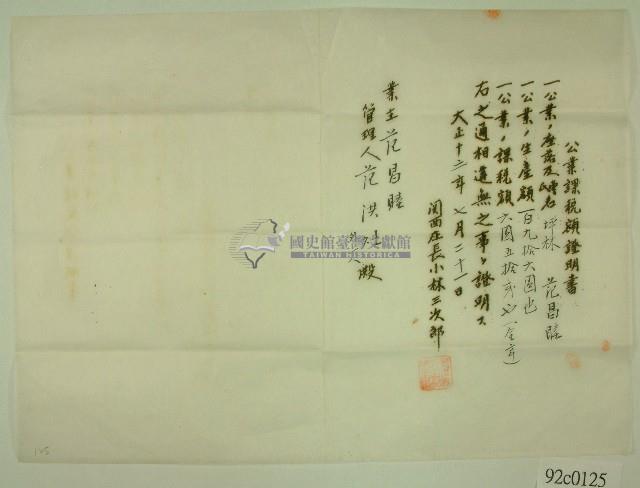 公業課稅額證明書
一公業ノ座落及號名 坪林 范昌睦
一公業ノ生產額 一百九拾六圓也
一公業ノ課稅額 六圓五拾弐 (一全前)
右之通相違無之事ヲ證明ス
大正十二年 七月二十一日
関西庄長小林三次郎
業主 范昌睦
管理人 范洪 殿
國史館臺灣文獻館
TAIWAN HISTORICA
125
92c0125